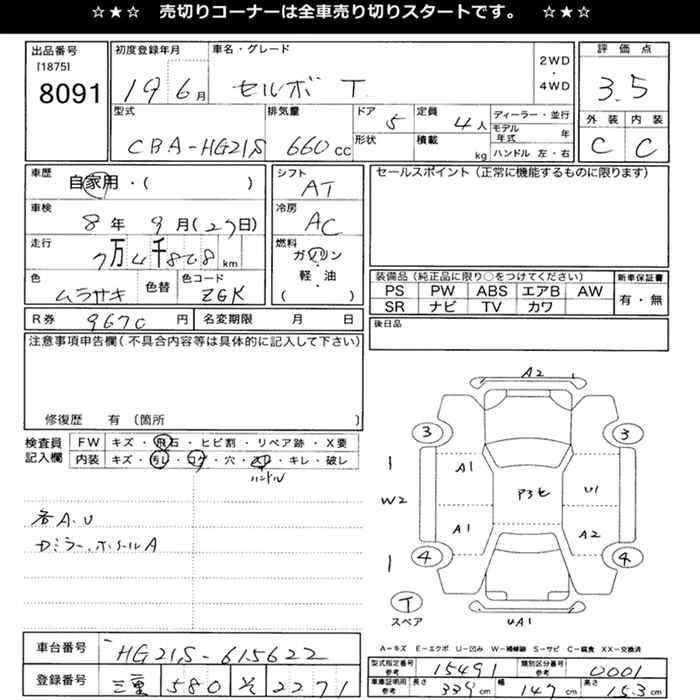 ☆★☆ 売切りコーナーは全車売り切りスタートです。 ☆★☆
出品番号 初度登録年月 車名・グレード 評価点
[1875]
8091 19 6月 セルボ T 2WD・4WD 3.5
型式 排気量 ドア 5 定員 4人 ディーラー・並行 外装 内装
CBA-HG21S 660cc 形状 積載 kg モデル年式 年 C C
ハンドル 左・右
車歴 シフト セールスポイント(正常に機能するものに限ります)
自家用・( ) AT
車検 冷房
8年 9月(27日) AC
走行 燃料
7万4千828km ガソリン
色 色替 色コード 軽・油 装備品(純正品に限り○をつけてください) 新車保証書
ムラサキ ZGK ( ) PS PW ABS エアB AW 有・無
SR ナビ TV カワ
R券 9670円 名変期限 月 日 後日品
注意事項申告欄(不具合内容等は具体的に記入して下さい)
修復歴 有 (箇所 )
検査員 FW キズ・飛石・ヒビ割・リペア跡・X要
記入欄 内装 キズ・汚レ・コゲ・穴・スレ・キレ・破レ
ハンドル
各A.U
ドミラー.ホイールA
A2
3 3
1 A1
W2 P3セ U1
A1 A2
1 4 4
T
スペア UA1
A-キズ E-エクボ U-凹み W-補修跡 S-サビ C-腐食 XX-交換済
車台番号 HG21S-615622
登録番号 三重 580 そ 2271
型式指定番号 参考 15491 類別区分番号 参考 0001
車車証明用 参考 長さ 339cm 幅 147cm 高さ 153cm